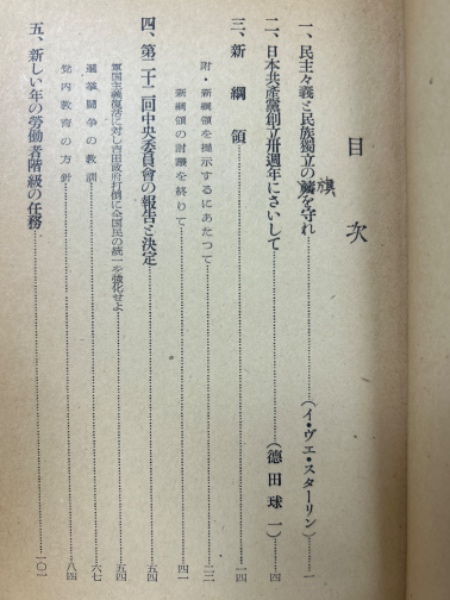 目次
一、民主々義と民族獨立の旗を守れ……(イ・ヴェ・スターリン)…一
二、日本共產黨創立卅週年にさいして……(德田球一)…四
三、新綱領……一四
附・新綱領を提示するにあたつて……二二
新綱領の討議を終りて……四一
四、第二十二回中央委員會の報告と決定……五四
軍国主義復活に対し吉田政府打倒に全国民の統一を強化せよ……五四
選挙闘争の教訓……六七
党内教育の方針……八四
五、新しい年の勞働者階級の任務……一〇一